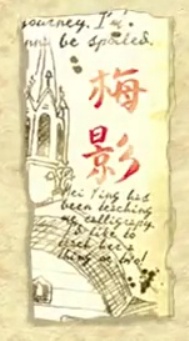 journey. I'm
be spoiled.
梅
影
Mei Ying has
been teaching
me calligraphy.
I'd like to
teach her a
thing or two!